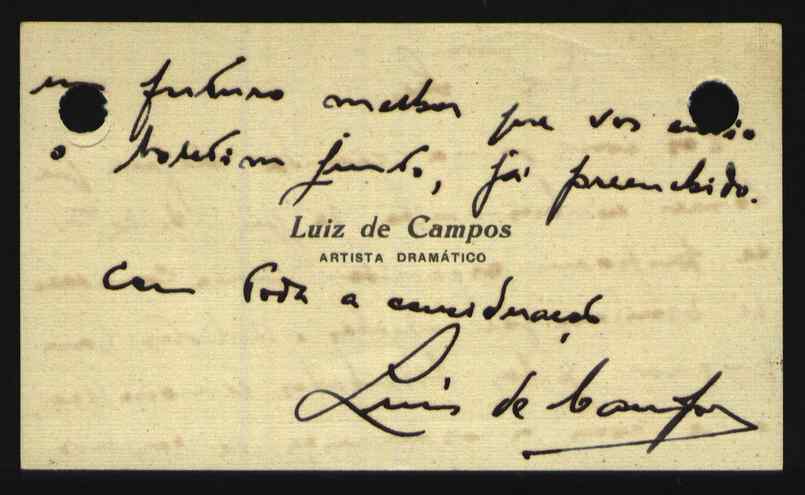 um futuro melhor que vos envio
o boletim junto, já preenchido.
Luiz de Campos
ARTISTA DRAMÁTICO
Com toda a consideração
Luiz de Campos